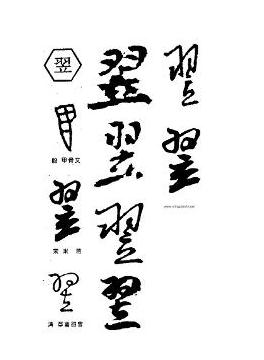 翌
殷 甲骨文
翌
宋 米芾
翌
清
翌
翌
翌
翌
翌
翌